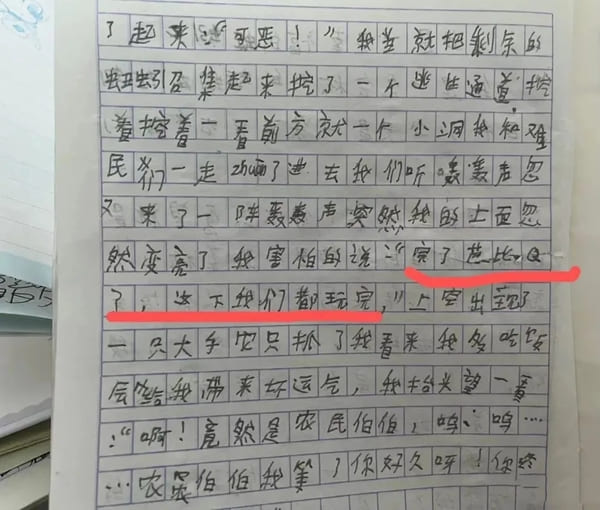 了起来："可恶！"我当就把剩余的
蛐蛐召集起来挖了一个逃生通道，挖
着挖着一看前方就一个小洞我和难
民们一走zhuan了进去我们听轰轰声忽
又来了一阵轰轰声突然我的上面忽
然变亮了我害怕的说："完了芭比Q
了，这下我们都玩完，"上空出现了
一只大手只抓了我看来我多吃饭
会给我带来坏运气，我抬头望一看
："啊！竟然是农民伯伯，呜呜…
…农民伯伯我等了你好久呀！你终